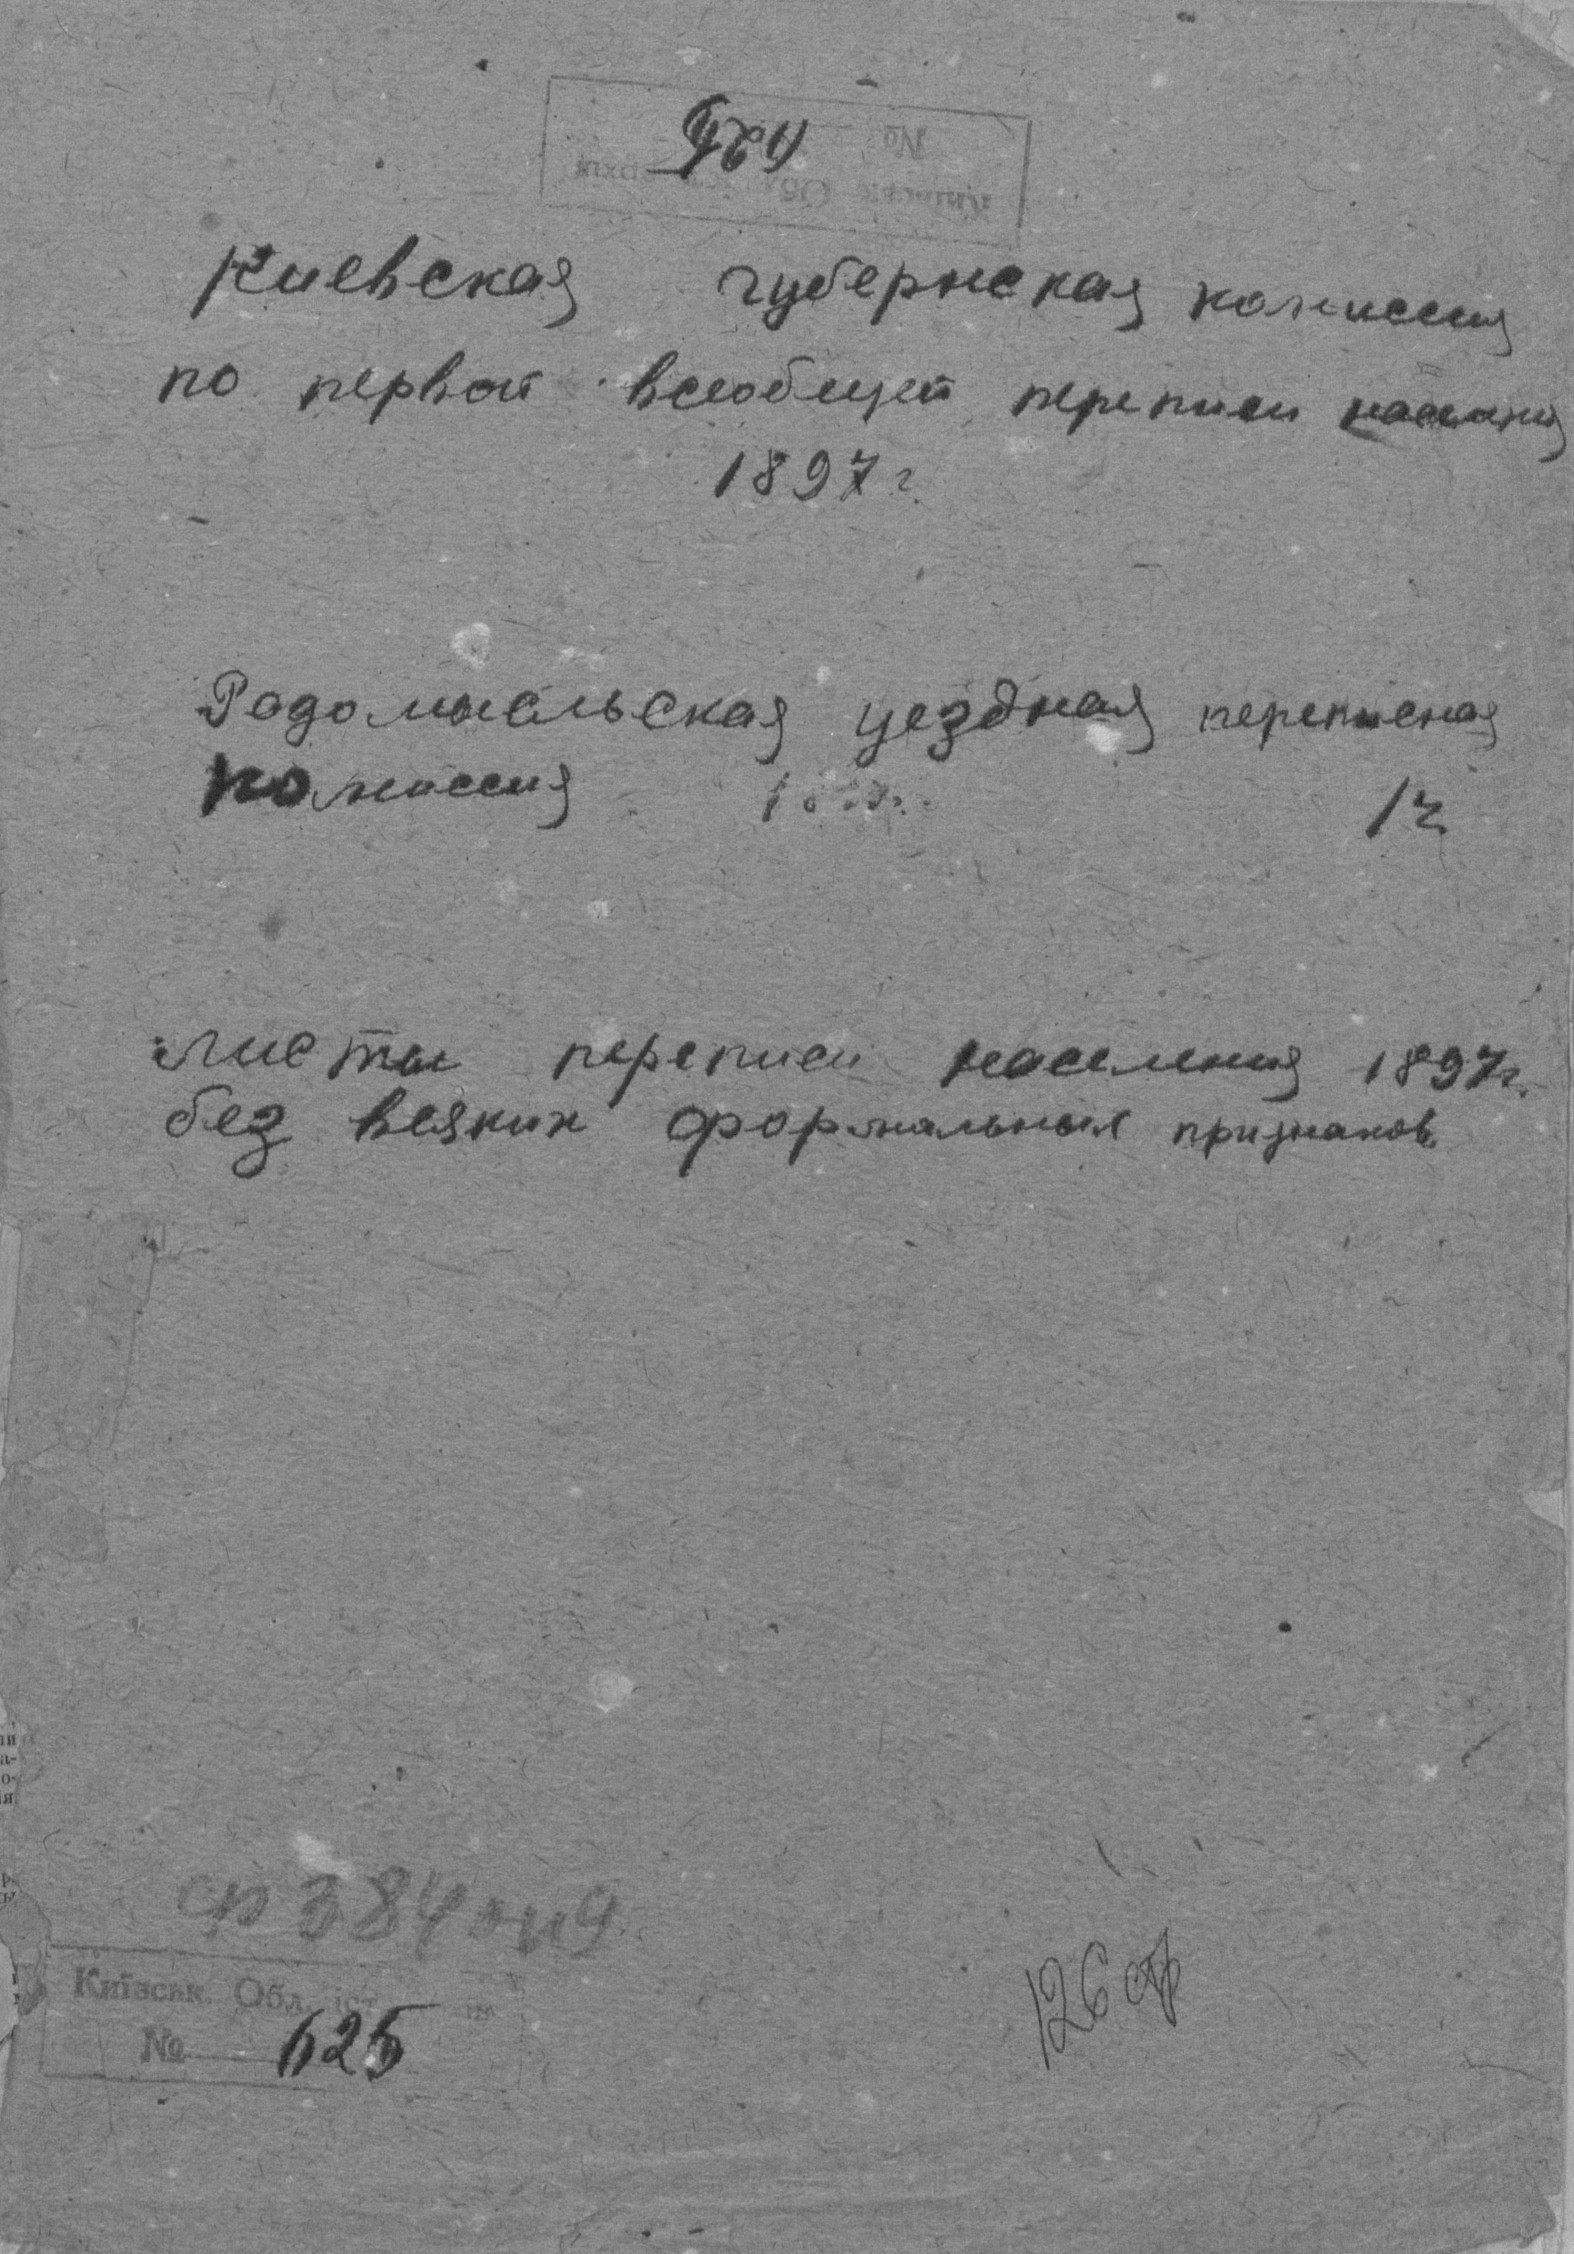 №
Киевская губернская комиссия
по первой всеобщей переписи населения
1897 г.
Радомысльская уездная переписная
комиссия
Листы переписи населения 1897 г.
без всяких формальных признаков
ф 384 оп 9
Київськ. Обл. іст.
№ 625
126